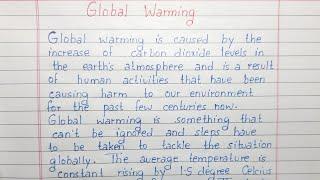 Global Warming
Global warming is caused by the
increase of carbon dioxide levels in
the earth's atmosphere and is a result
of human activities that have been
causing harm to our environment
for the past few centuries now.
Global warming is something that
can't be ignored and steps have
to be taken to tackle the situation
globally. The average temperature is
constant rising by 1.5 degree Celcius